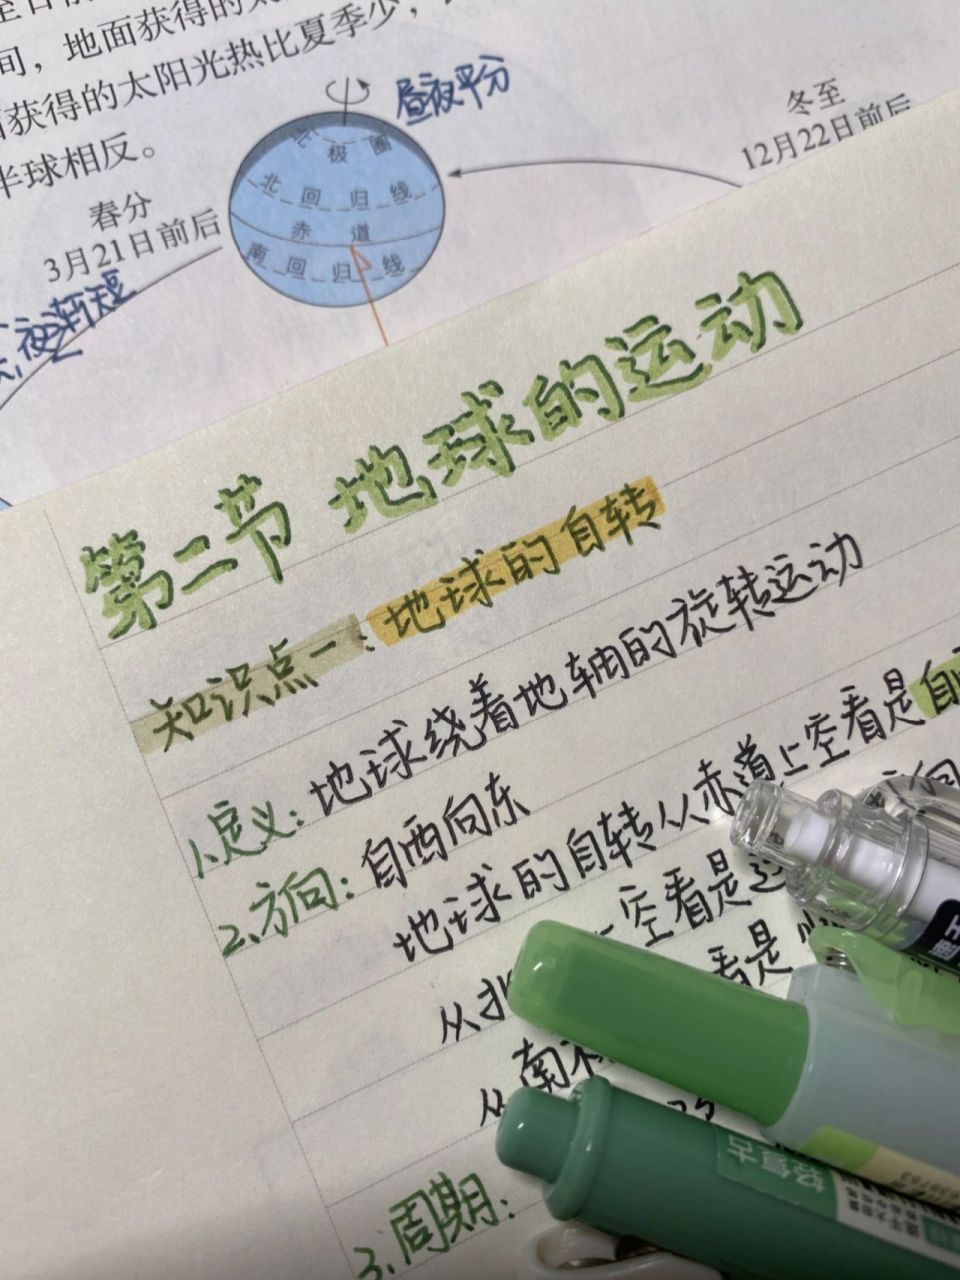 间，地面获得的太
获得的太阳光热比夏季少，
半球相反。
昼夜平分
冬至
12月22日前后
春分
3月21日前后
夜渐短
北极圈
北回归线
赤道
南回归线
第二节 地球的运动
知识点一：地球的自转
1、定义：地球绕着地轴的旋转运动
2、方向：自西向东
地球的自转从赤道上空看是自
从北 上空看是
看是
从南
3、周期：
轻复古